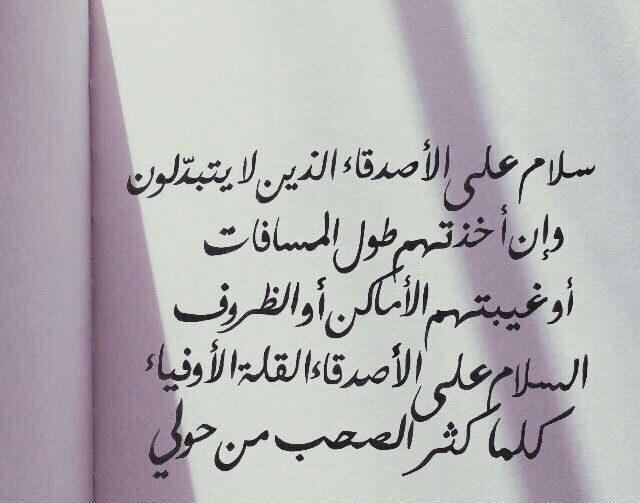 سلام على الأصدقاء الذين لا يتبدّلون
وإن أخذتهم طول المسافات
أو غيبتهم الأماكن أو الظروف
السلام على الأصدقاء القلة الأوفياء
كلما كثر الصحب من حولي